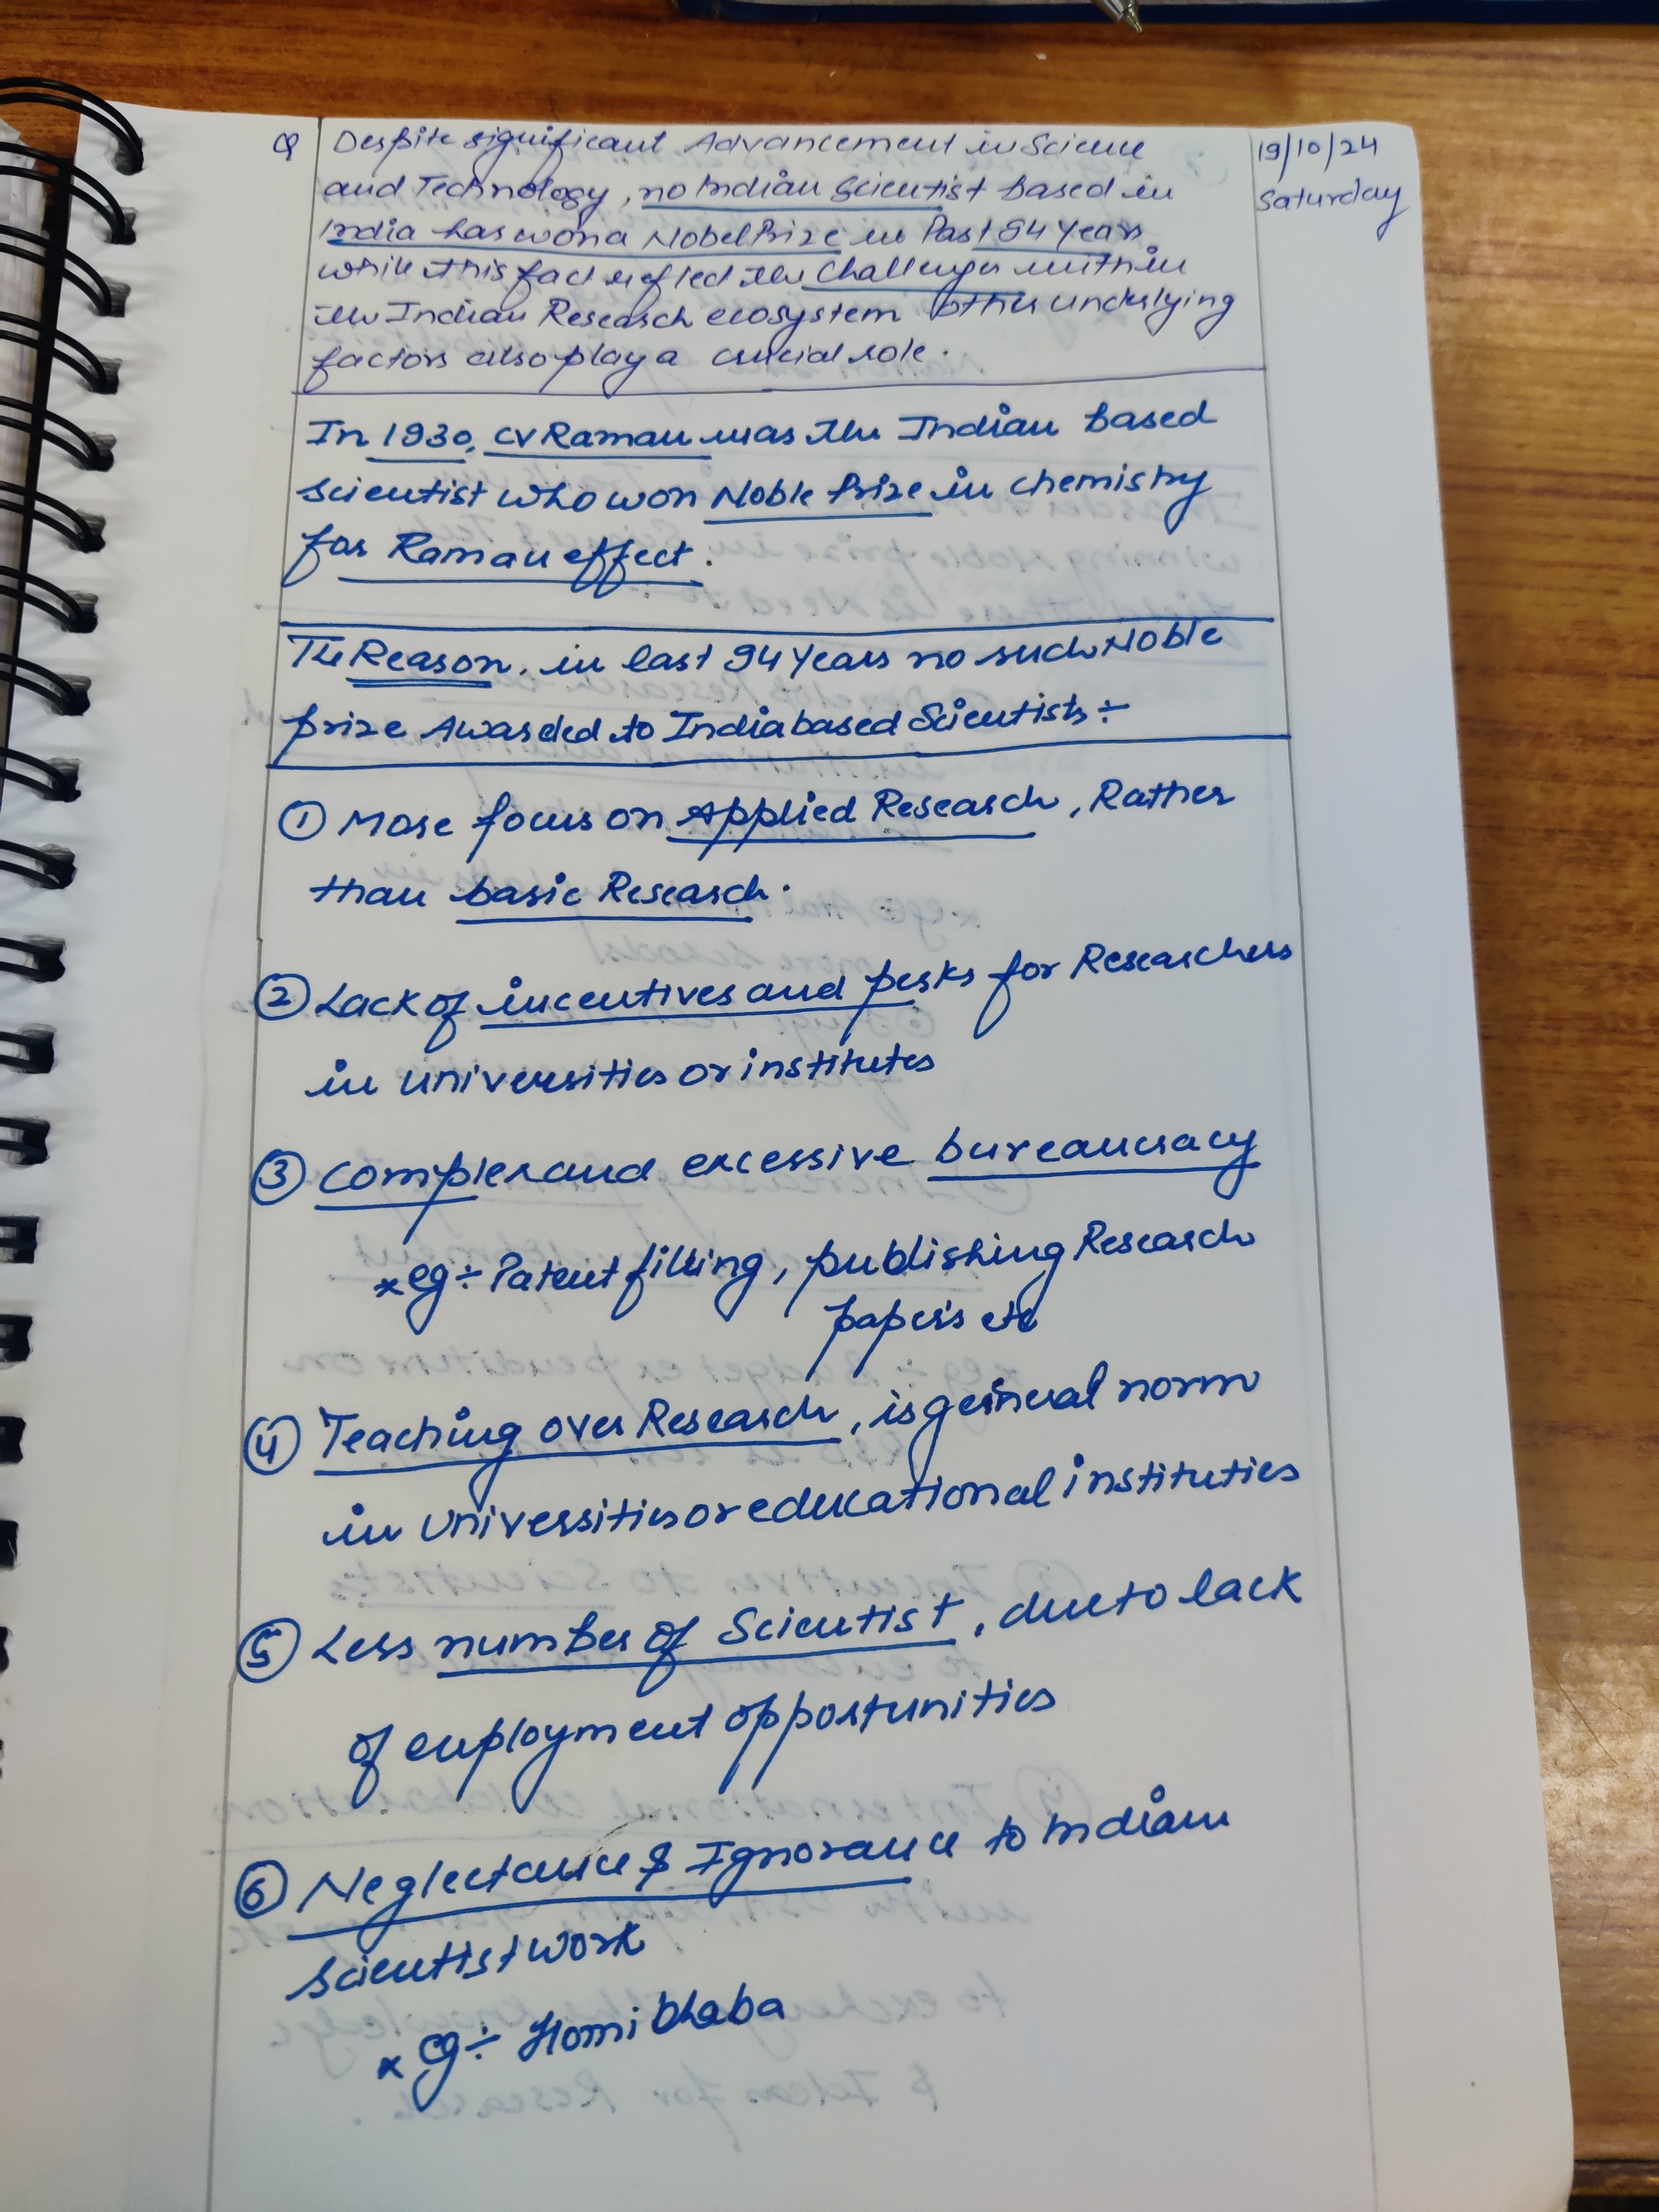 Q Despite significant Advancement in Science
19/10/24
and Technology, no Indian Scientist based in
Saturday
India has won a Nobel Prize in Past 94 Years
while this fact refled the Challenges within
the Indian Research ecosystem other underlying
factors also play a crucial role.
In 1930, CV Raman was the Indian based
scientist who won Noble Prize in chemistry
for Raman effect.
The Reason, in last 94 Years no such Noble
prize Awarded to India based Scientists ÷
① More focus on Applied Research, Rather
than basic Research.
② Lack of incentives and perks for Researchers
in universities or institutes
③ Complex and excessive bureaucracy
* eg ÷ Patent filling, publishing Research
papers etc
④ Teaching over Research, is general norm
in Universities or educational instituties
⑤ Less number of Scientist, due to lack
of employment opportunities
⑥ Neglectance & Ignorance to Indian
scientist work
* eg ÷ Homi Bhaba